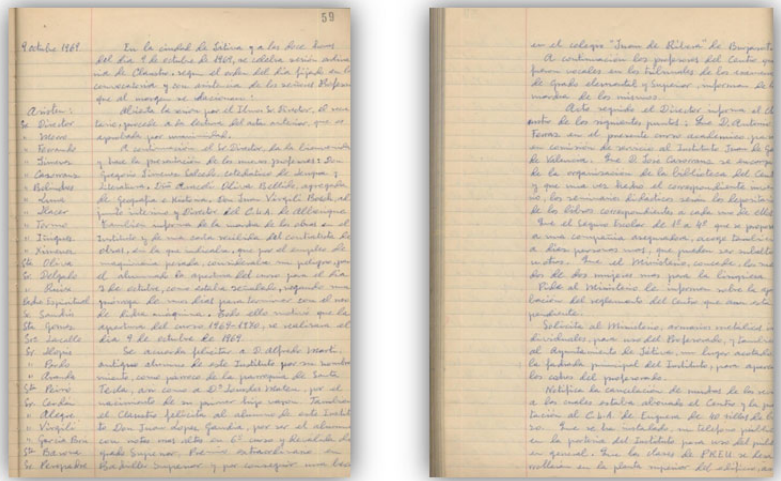 59
9 octubre 1969
En la ciudad de Játiva y a las doce horas
del día 9 de octubre de 1969, se celebra sesión ordina
ria de Claustro, según el orden del día fijado en la
convocatoria y con asistencia de los señores Profesores
que al margen se relacionan:
Asisten:
Abierta la sesión por el Ilmo Sr. Director, el secre
Sr. Director
tario, procede a la lectura del acta anterior, que es
" Morro
aprobada por unanimidad.
" Ferrando
A continuación el Sr Director, da la bienvenida
" Jimenez
y hace la presentación de los nuevos profesores: Don
" Casorrans
Gregorio Jimenez Salcedo, catedrático de Lengua y
Literatura, Araceli Oliva Bellido, agregada
de Geografía e Historia, Don Juan Virgili Bosch, ad
junto interino y Director del C.L.A. de Alberique
" Tormo
También informa de la marcha de las obras en el
" Iñiguez
Instituto y de una carta recibida del contratista de
" Ximenez
obras, en la que indicaba, que por el empleo de
Sta Oliva
maquinaria pesada, consideraba un peligro para
Sr. Delgado
el alumnado la apertura del curso para el día
" Ruiz
3 de octubre, como estaba señalado, rogando una
Padre Espiritual
prórroga de unos días para terminar con el uso
Sr Sanchis
de dicha máquina. Todo ello motivó que la
Sta Gomez
apertura del curso 1969-1970, se realizara el
día 9 de octubre de 1969.
Se acuerda felicitar a D. Alfredo
antiguo alumno de este Instituto por su nombra
" Aranda
miento como párroco de la parroquia de Santa
Sta Peiro
Tecla, así como a Dª Lourdes Mateu, por el
Sr. Cerdán
nacimiento de su primer hijo varón. También
" Alegre
el Claustro felicita al alumno de este Institu
" Virgili
to Don Juan Lopez Gandia, por ser el alumno
" Garcia
con notas más altas en 6º curso y reválida de
Sta
grado Superior, Premio extraordinario en
Sr.
Bachiller Superior y por conseguir una beca
en el colegio "Juan de Ribera" de Burjasot
A continuación los profesores del Centro que
fueron vocales en los tribunales de los exámenes
de grado elemental y Superior, informan de la
marcha de los mismos.
Acto seguido el Director informa al Claus
de los siguientes puntos: Que D. Antonio
Ferraz en el presente curso académico, pasa
en comisión de servicio al Instituto Juan de G
de Valencia. Que D. Jose Casorrans se encarga
de la organización de la biblioteca del Cent
y que una vez hecho el correspondiente inventa
rio, los seminarios didácticos serán los deposita
de los libros correspondientes a cada uno de ellos
Que el Seguro Escolar de 1º a 4º que se propone
a una compañía aseguradora, acoge también
a diez personas más, que pueden ser subalter
u otros. Que el Ministerio, concede, los suel
dos de dos mujeres más para la limpieza.
Pide al Ministerio le informen sobre la apro
bación del reglamento del Centro que aún está
pendiente.
Solicita al Ministerio, armarios metálicos in
dividuales, para uso del Profesorado, y también
al Ayuntamiento de Játiva, un lugar acotado
la fachada principal del Instituto, para aparcar
los coches del profesorado.
Notifica la cancelación de muchas de las revis
a las cuales estaba abonado el Centro, y la pe
tación al C.L.A. de Enguera de 60 sillas de
Que se ha instalado, un teléfono público
en la portería del Instituto para uso del públi
en general. Que las clases de PREU se desa
rrollaran en la planta superior del edificio, en